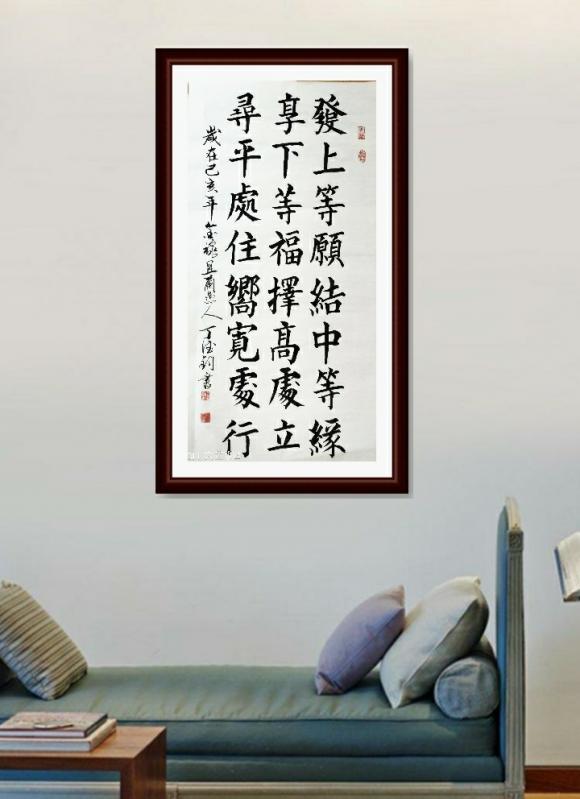 發上等願結中等緣
享下等福擇髙處立
尋平處住嚮寬處行
歲在己亥年且蘭人丁書